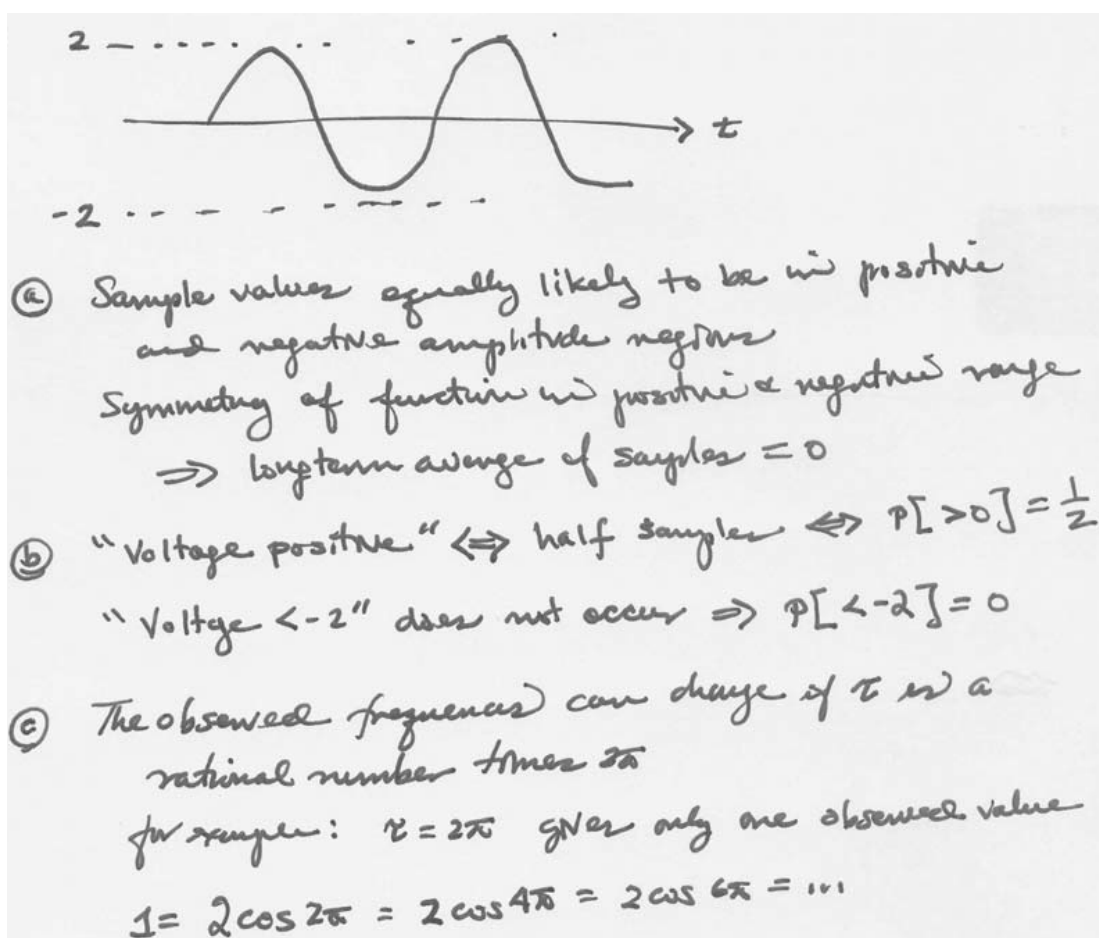 2
t
-2
(a) Sample values equally likely to be in positive
and negative amplitude regions
Symmetry of function in positive & negative range
⇒ long term average of samples = 0
(b) "Voltage positive" ⇔ half samples ⇔ P[>0] = 1/2
"Voltge <-2" does not occur ⇒ P[<-2] = 0
(c) The observed frequencies can change if τ is a
rational number times 2π
for example: τ = 2π gives only one observed value
1 = 2 cos 2π = 2 cos 4π = 2 cos 6π = ...